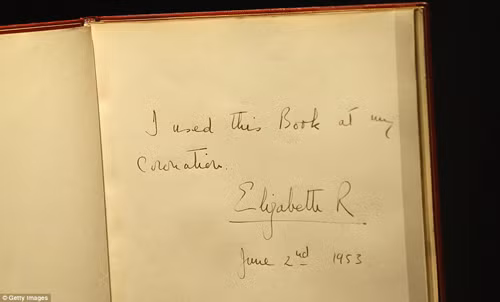 I used this Book at my
Coronation.
Elizabeth R
June 2nd 1953
© Getty Images